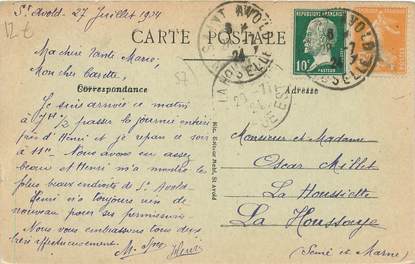 St Avold - 27 Juillet 1924
12 €
CARTE POSTALE
Correspondance
Adresse
Ma chère Tante Marie,
Mon cher Cazette,
Je suis arrivée ce matin
à 7H ½ passer la journée entière
près d'Henri et je repars ce soir
à 11H. Nous avons eu assez
beau et Henri m'a montré les
plus beaux endroits de St Avold.
Henri n'a toujours rien de
nouveau pour ses permissions.
Nous vous embrassons tous deux
bien affectueusement.
Henri
Monsieur et Madame
Oscar Millet
La Houssiette
La Houssaye
(Seine et Marne)
ST AVOLD
MOSELLE
10c
PASTEUR